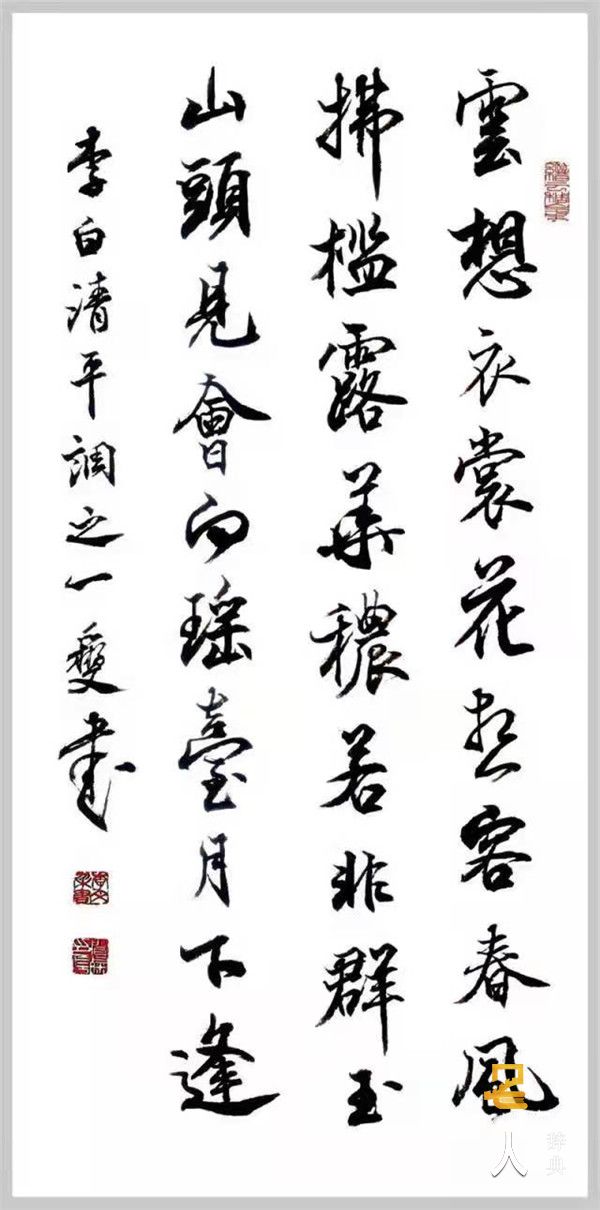 雲想衣裳花想容春風
拂檻露華穠若非群玉
山頭見會向瑶臺月下逢
李白清平調之一書
人
辞典